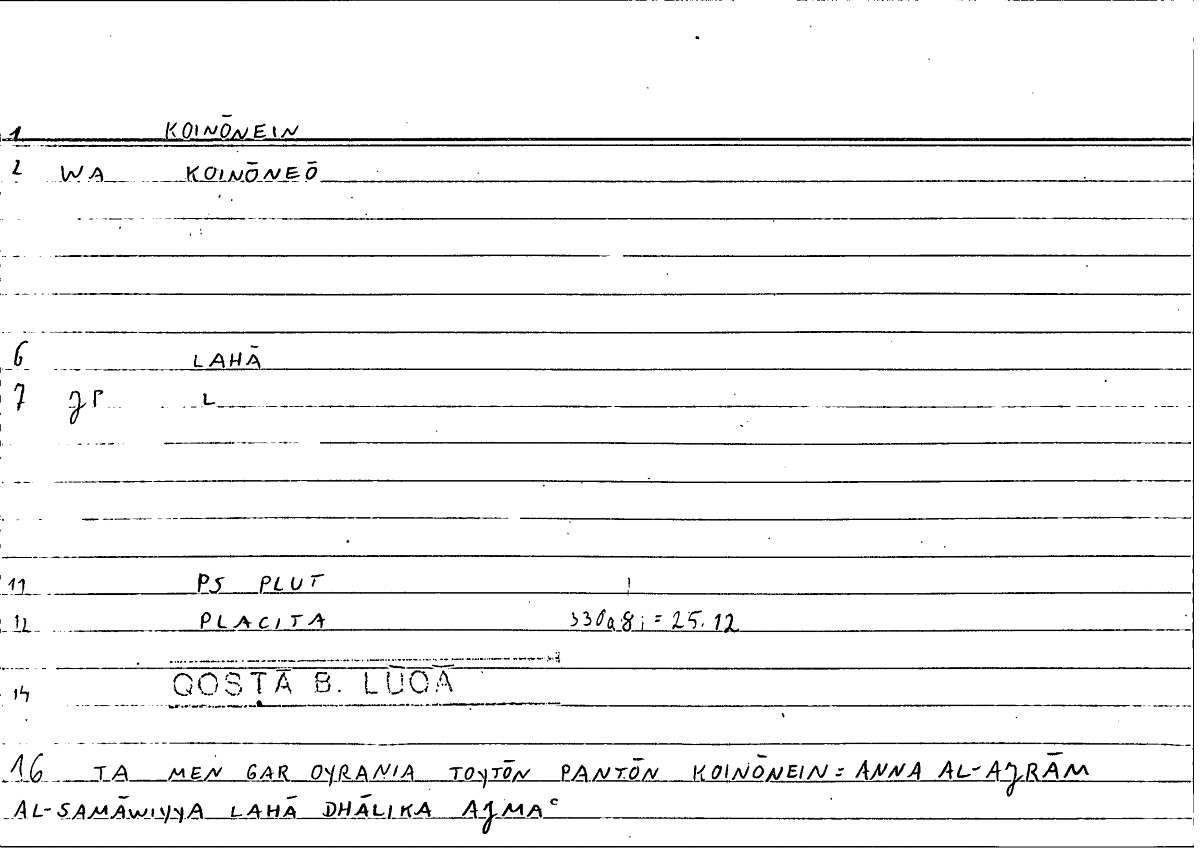 1 KOINŌNEIN
2 WA KOINŌNEŌ
6 LAHĀ
7 JP L
11 PS PLUT
12 PLACITA 330a8; = 25.12
14 QOSṬĀ B. LŪQĀ
16 TA MEN GAR OYRANIA TOYTŌN PANTŌN KOINŌNEIN = ANNA AL-AJRĀM
AL-SAMĀWIYYA LAHĀ DHĀLIKA AJMAʿ